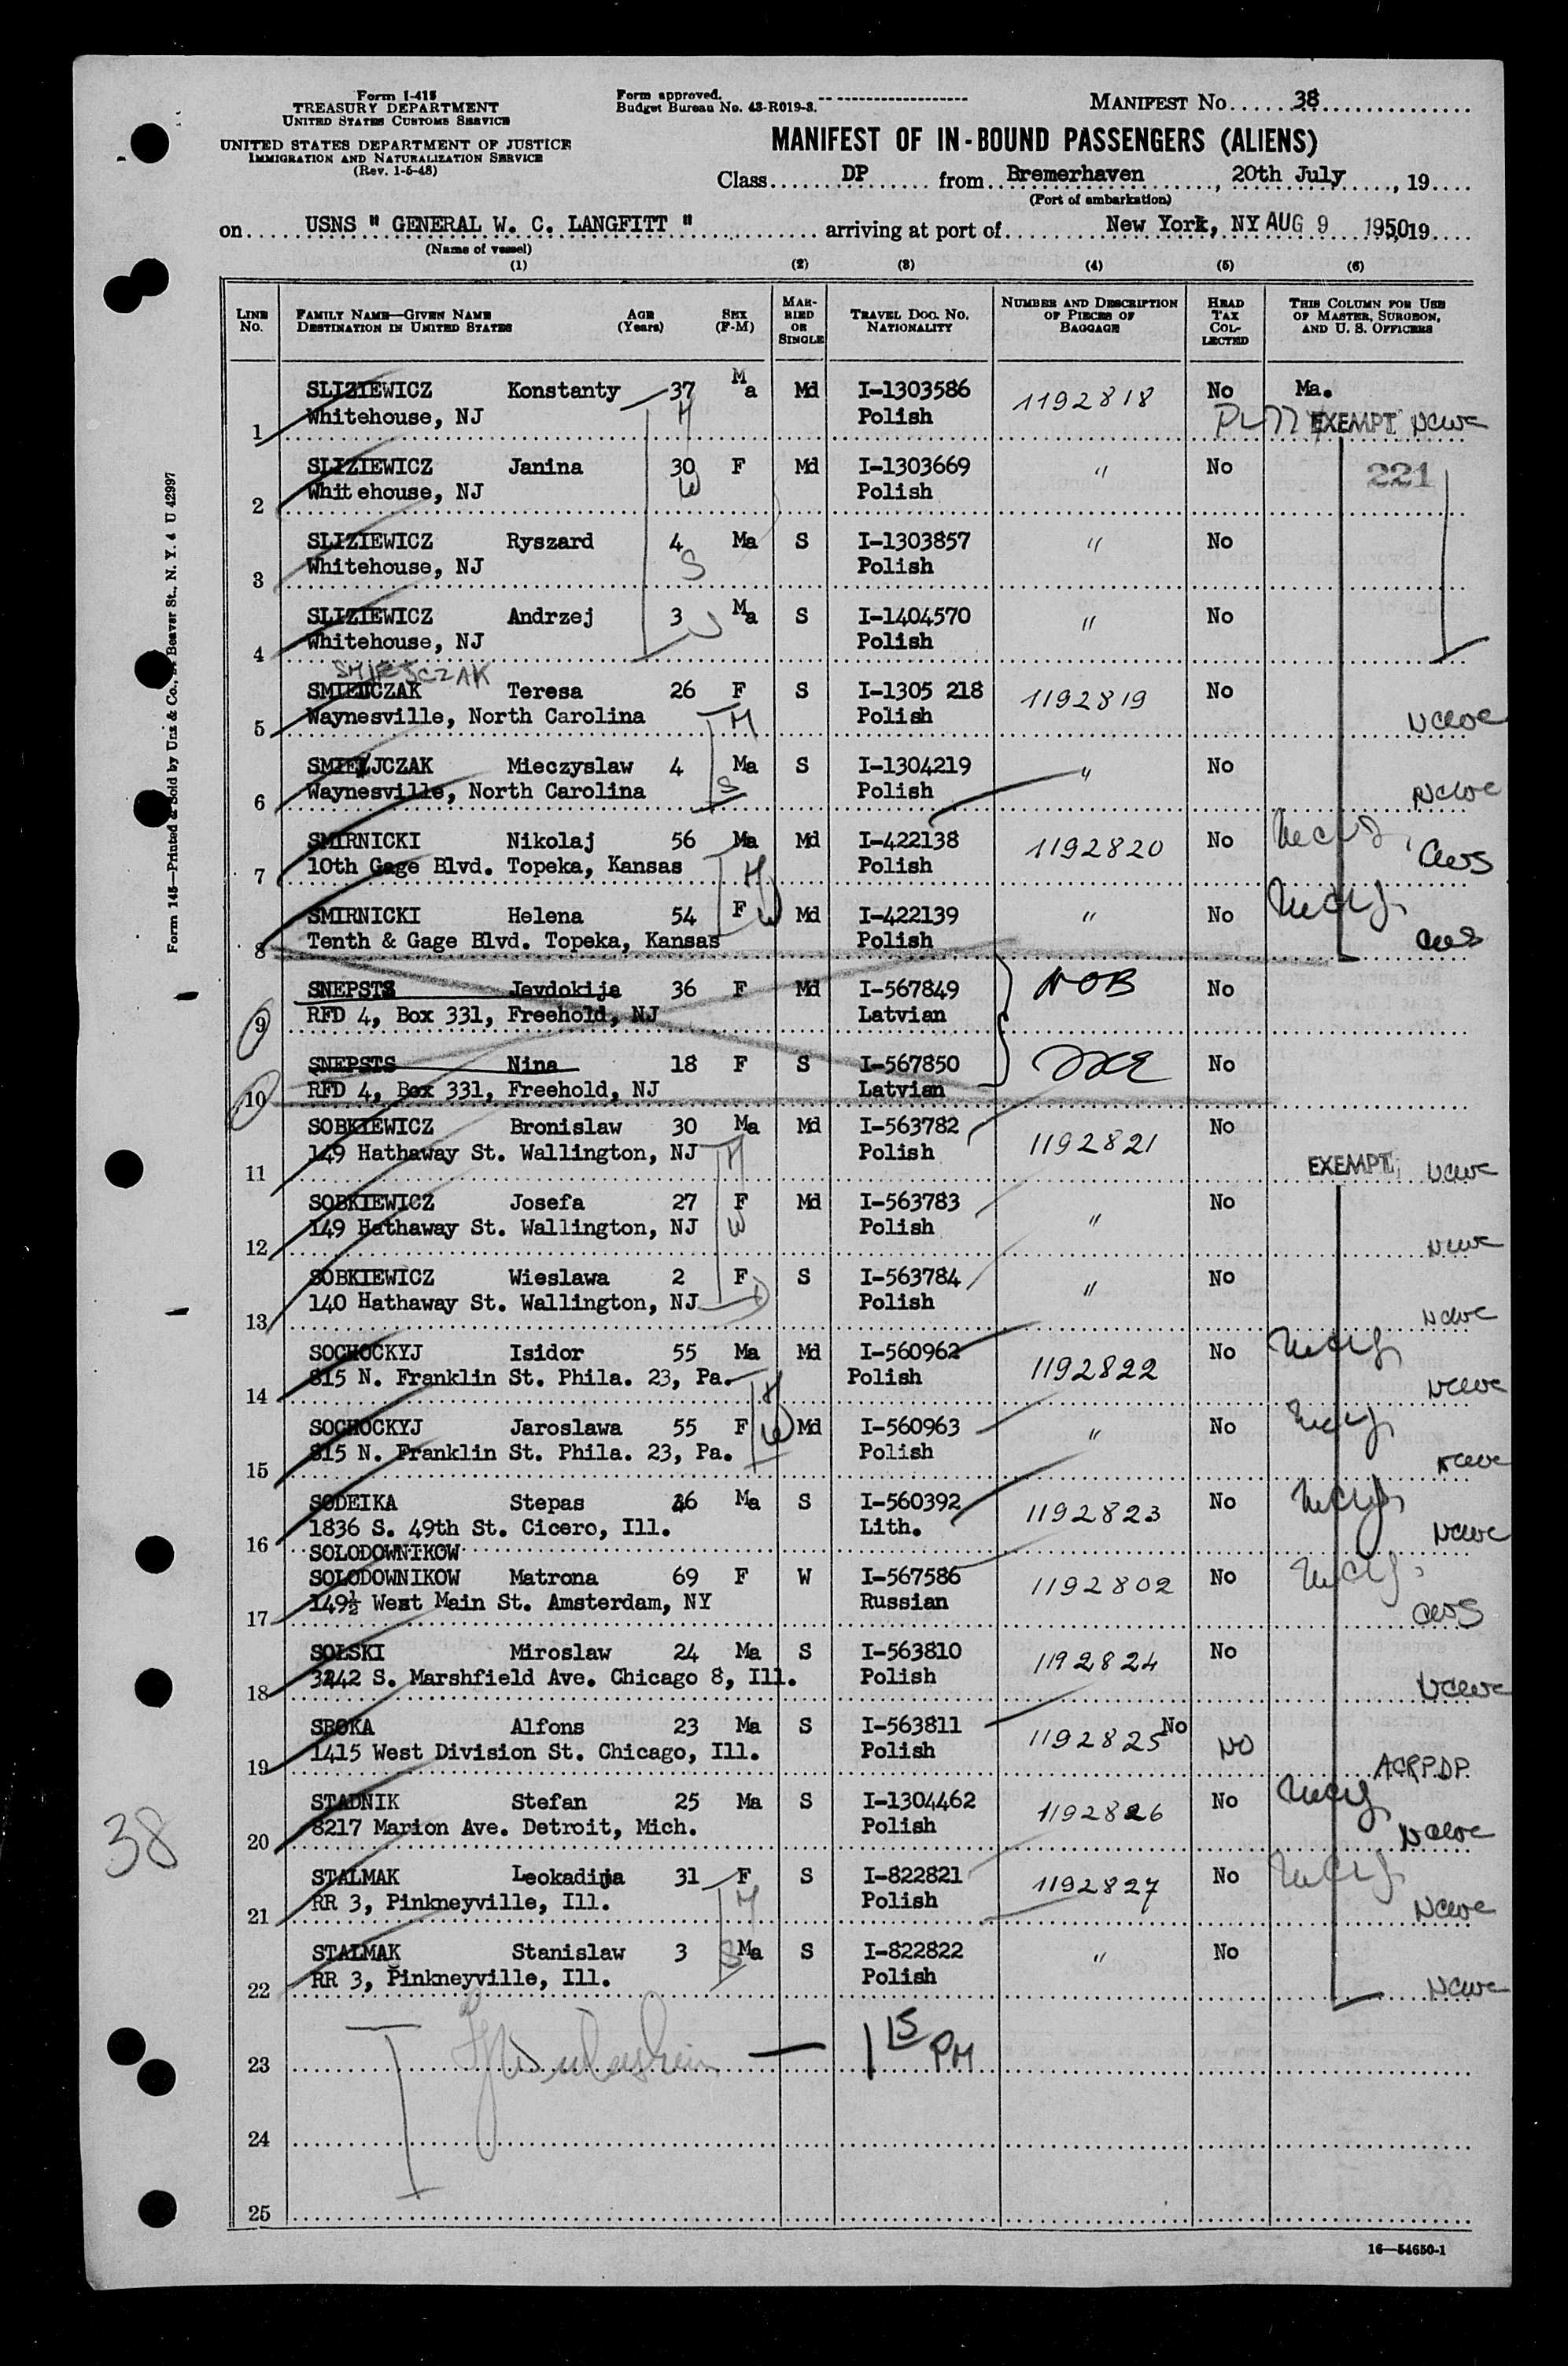 Form I-418
TREASURY DEPARTMENT
UNITED STATES CUSTOMS SERVICE
UNITED STATES DEPARTMENT OF JUSTICE
IMMIGRATION AND NATURALIZATION SERVICE
(Rev. 1-5-48)
Form approved.
Budget Bureau No. 43-R019-3.
MANIFEST No. 38
MANIFEST OF IN-BOUND PASSENGERS (ALIENS)
Class DP from Bremerhaven, 20th July, 19
(Port of embarkation)
on USNS " GENERAL W. C. LANGFITT " arriving at port of New York, NY AUG 9 1950 19
(Name of vessel)
(1) (2) (3) (4) (5) (6)
LINE No. FAMILY NAME—GIVEN NAME DESTINATION IN UNITED STATES AGE (Years) SEX (F-M) MARRIED OR SINGLE TRAVEL DOC. NO. NATIONALITY NUMBER AND DESCRIPTION OF PIECES OF BAGGAGE HEAD TAX COLLECTED THIS COLUMN FOR USE OF MASTER, SURGEON, AND U. S. OFFICERS
SLIZIEWICZ Konstanty 37 Ma Md I-1303586 1192818 No Ma.
1 Whitehouse, NJ H Polish EXEMPT NCWC
SLIZIEWICZ Janina 30 F Md I-1303669 " No 221
2 Whitehouse, NJ W Polish
SLIZIEWICZ Ryszard 4 Ma S I-1303857 " No
3 Whitehouse, NJ S Polish
SLIZIEWICZ Andrzej 3 Ma S I-1404570 " No
4 Whitehouse, NJ Polish
SMIEJCZAK
SMIEUCZAK Teresa 26 F S I-1305 218 1192819 No
5 Waynesville, North Carolina H Polish NCWC
SMIEJCZAK Mieczyslaw 4 Ma S I-1304219 " No
6 Waynesville, North Carolina S Polish NCWC
SMIRNICKI Nikolaj 56 Ma Md I-422138 1192820 No
7 10th Gage Blvd. Topeka, Kansas H Polish CWS
SMIRNICKI Helena 54 F W Md I-422139 " No
8 Tenth & Gage Blvd. Topeka, Kansas Polish CWS
SNEPSTS Jevdokija 36 F Md I-567849 NOB No
9 RFD 4, Box 331, Freehold, NJ Latvian
SNEPSTS Nina 18 F S I-567850 No
10 RFD 4, Box 331, Freehold, NJ Latvian
SOBKIEWICZ Bronislaw 30 Ma Md I-563782 1192821 No
11 149 Hathaway St. Wallington, NJ H Polish EXEMPT NCWC
SOBKIEWICZ Josefa 27 F Md I-563783 " No
12 149 Hathaway St. Wallington, NJ W Polish NCWC
SOBKIEWICZ Wieslawa 2 F S I-563784 " No
13 140 Hathaway St. Wallington, NJ D Polish NCWC
SOCHOCKYJ Isidor 55 Ma Md I-560962 1192822 No
14 815 N. Franklin St. Phila. 23, Pa. H Polish NCWC
SOCHOCKYJ Jaroslawa 55 F W Md I-560963 " No
15 815 N. Franklin St. Phila. 23, Pa. Polish NCWC
SODEIKA Stepas 46 Ma S I-560392 1192823 No
16 1836 S. 49th St. Cicero, Ill. Lith. NCWC
SOLODOWNIKOW
SOLODOWNIKOW Matrona 69 F W I-567586 1192802 No
17 149½ West Main St. Amsterdam, NY Russian CWS
SOLSKI Miroslaw 24 Ma S I-563810 1192824 No
18 3242 S. Marshfield Ave. Chicago 8, Ill. Polish NCWC
SROKA Alfons 23 Ma S I-563811 1192825 No
19 1415 West Division St. Chicago, Ill. Polish NO ACRPDP
STADNIK Stefan 25 Ma S I-1304462 1192826 No
20 8217 Marion Ave. Detroit, Mich. Polish NCWC
STALMAK Leokadija 31 F S I-822821 1192827 No
21 RR 3, Pinkneyville, Ill. H Polish NCWC
STALMAK Stanislaw 3 S Ma S I-822822 " No
22 RR 3, Pinkneyville, Ill. Polish NCWC
23 — 1 15 PM
24
25
38
16—54650-1
Form 145—Printed & Sold by Unz & Co., Beaver St., N. Y. 4 U 42997